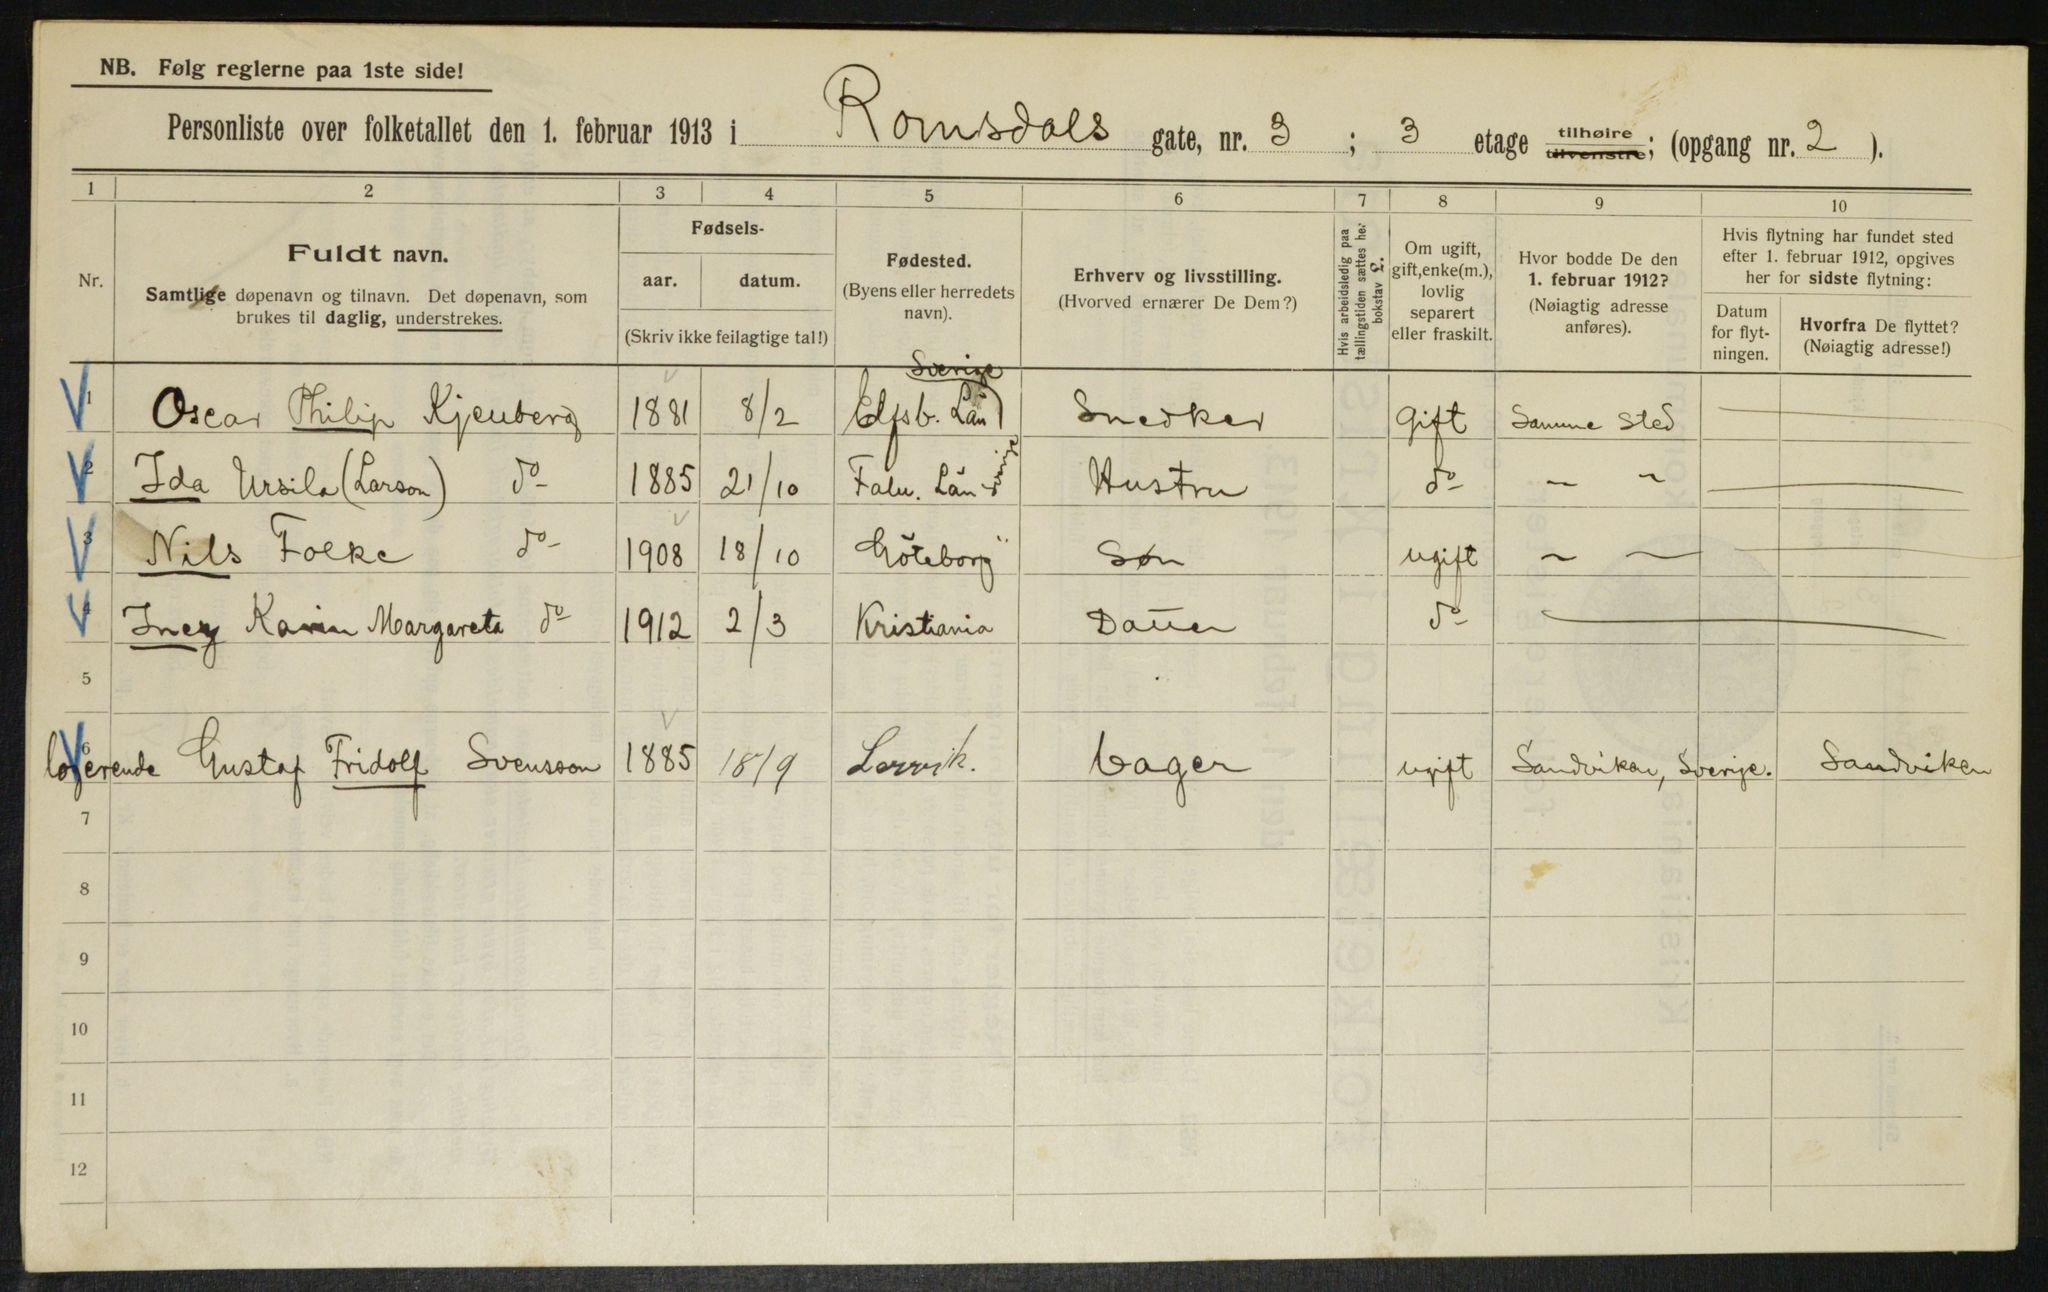 NB. Følg reglerne paa 1ste side!
Personliste over folketallet den 1. februar 1913 i Romsdals gate, nr. 3 ; 3 etage tilhøire tilvenstre; (opgang nr. 2 ).
1 2 3 4 5 6 7 8 9 10
Nr.
Fuldt navn.
Samtlige døpenavn og tilnavn. Det døpenavn, som
brukes til daglig, understrekes.
Fødsels-
aar. datum.
(Skriv ikke feilagtige tal!)
Fødested.
(Byens eller herredets
navn).
Erhverv og livsstilling.
(Hvorved ernærer De Dem?)
Hvis arbeidsledig paa
tællingstiden sættes her
bokstav L.
Om ugift,
gift, enke(m.),
lovlig
separert
eller fraskilt.
Hvor bodde De den
1. februar 1912?
(Nøiagtig adresse
anføres).
Hvis flytning har fundet sted
efter 1. februar 1912, opgives
her for sidste flytning:
Datum
for flyt-
ningen.
Hvorfra De flyttet?
(Nøiagtig adresse!)
Sverige
1 Oscar Philip Kjenberg 1881 8/2 Elfsb. Län Snedker gift Samme sted
2 Ida Ursila (Larson) do 1885 21/10 Falu. Län Sverige Hustru do " "
3 Nils Folke do 1908 18/10 Göteborg Søn ugift " "
4 Inez Karin Margareta do 1912 2/3 Kristiania Datter do
5
6 logerende Gustaf Fridolf Svensson 1885 18/9 Lervik. Lager ugift Sandviken, Sverige. Sandviken
7
8
9
10
11
12